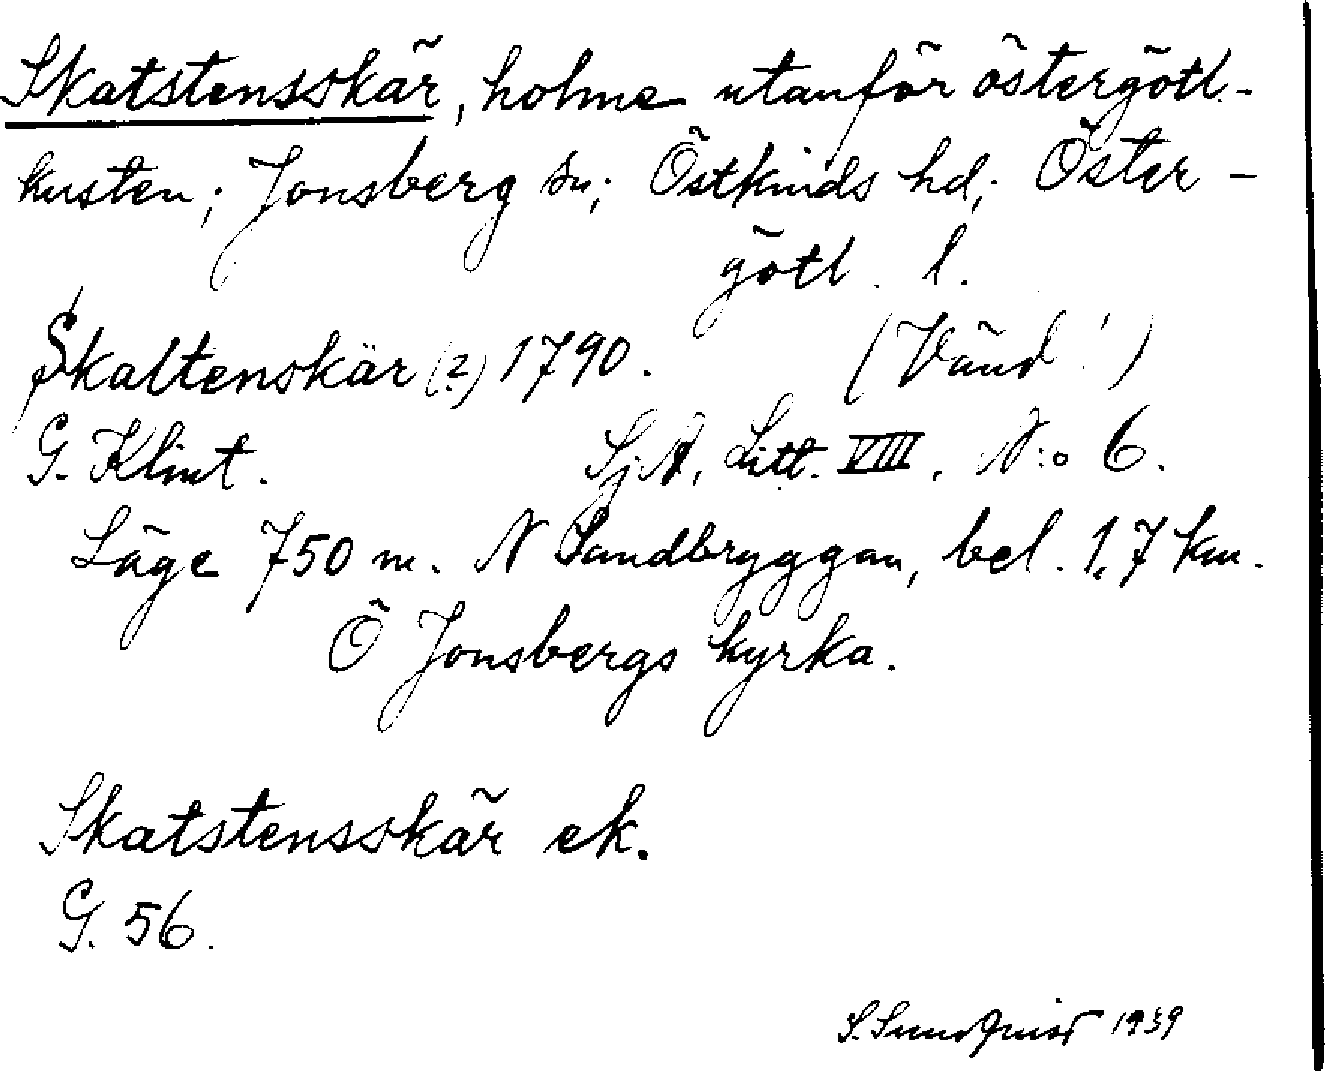 Skatstensskär, holme utanför östergötl.-
kusten; Jonsberg sn; Östkinds hd; Öster-
götl. l.
Skaltenskär (?) 1790. (Vänd!)
G. Klint. Sj.A. Litt. VIII. N:o 6.
Läge 750 m. N Sandbryggan, bel. 1,7 km.
Ö Jonsbergs kyrka.
Skatstensskär ek.
G. 56.
S. Sundqvist 1939